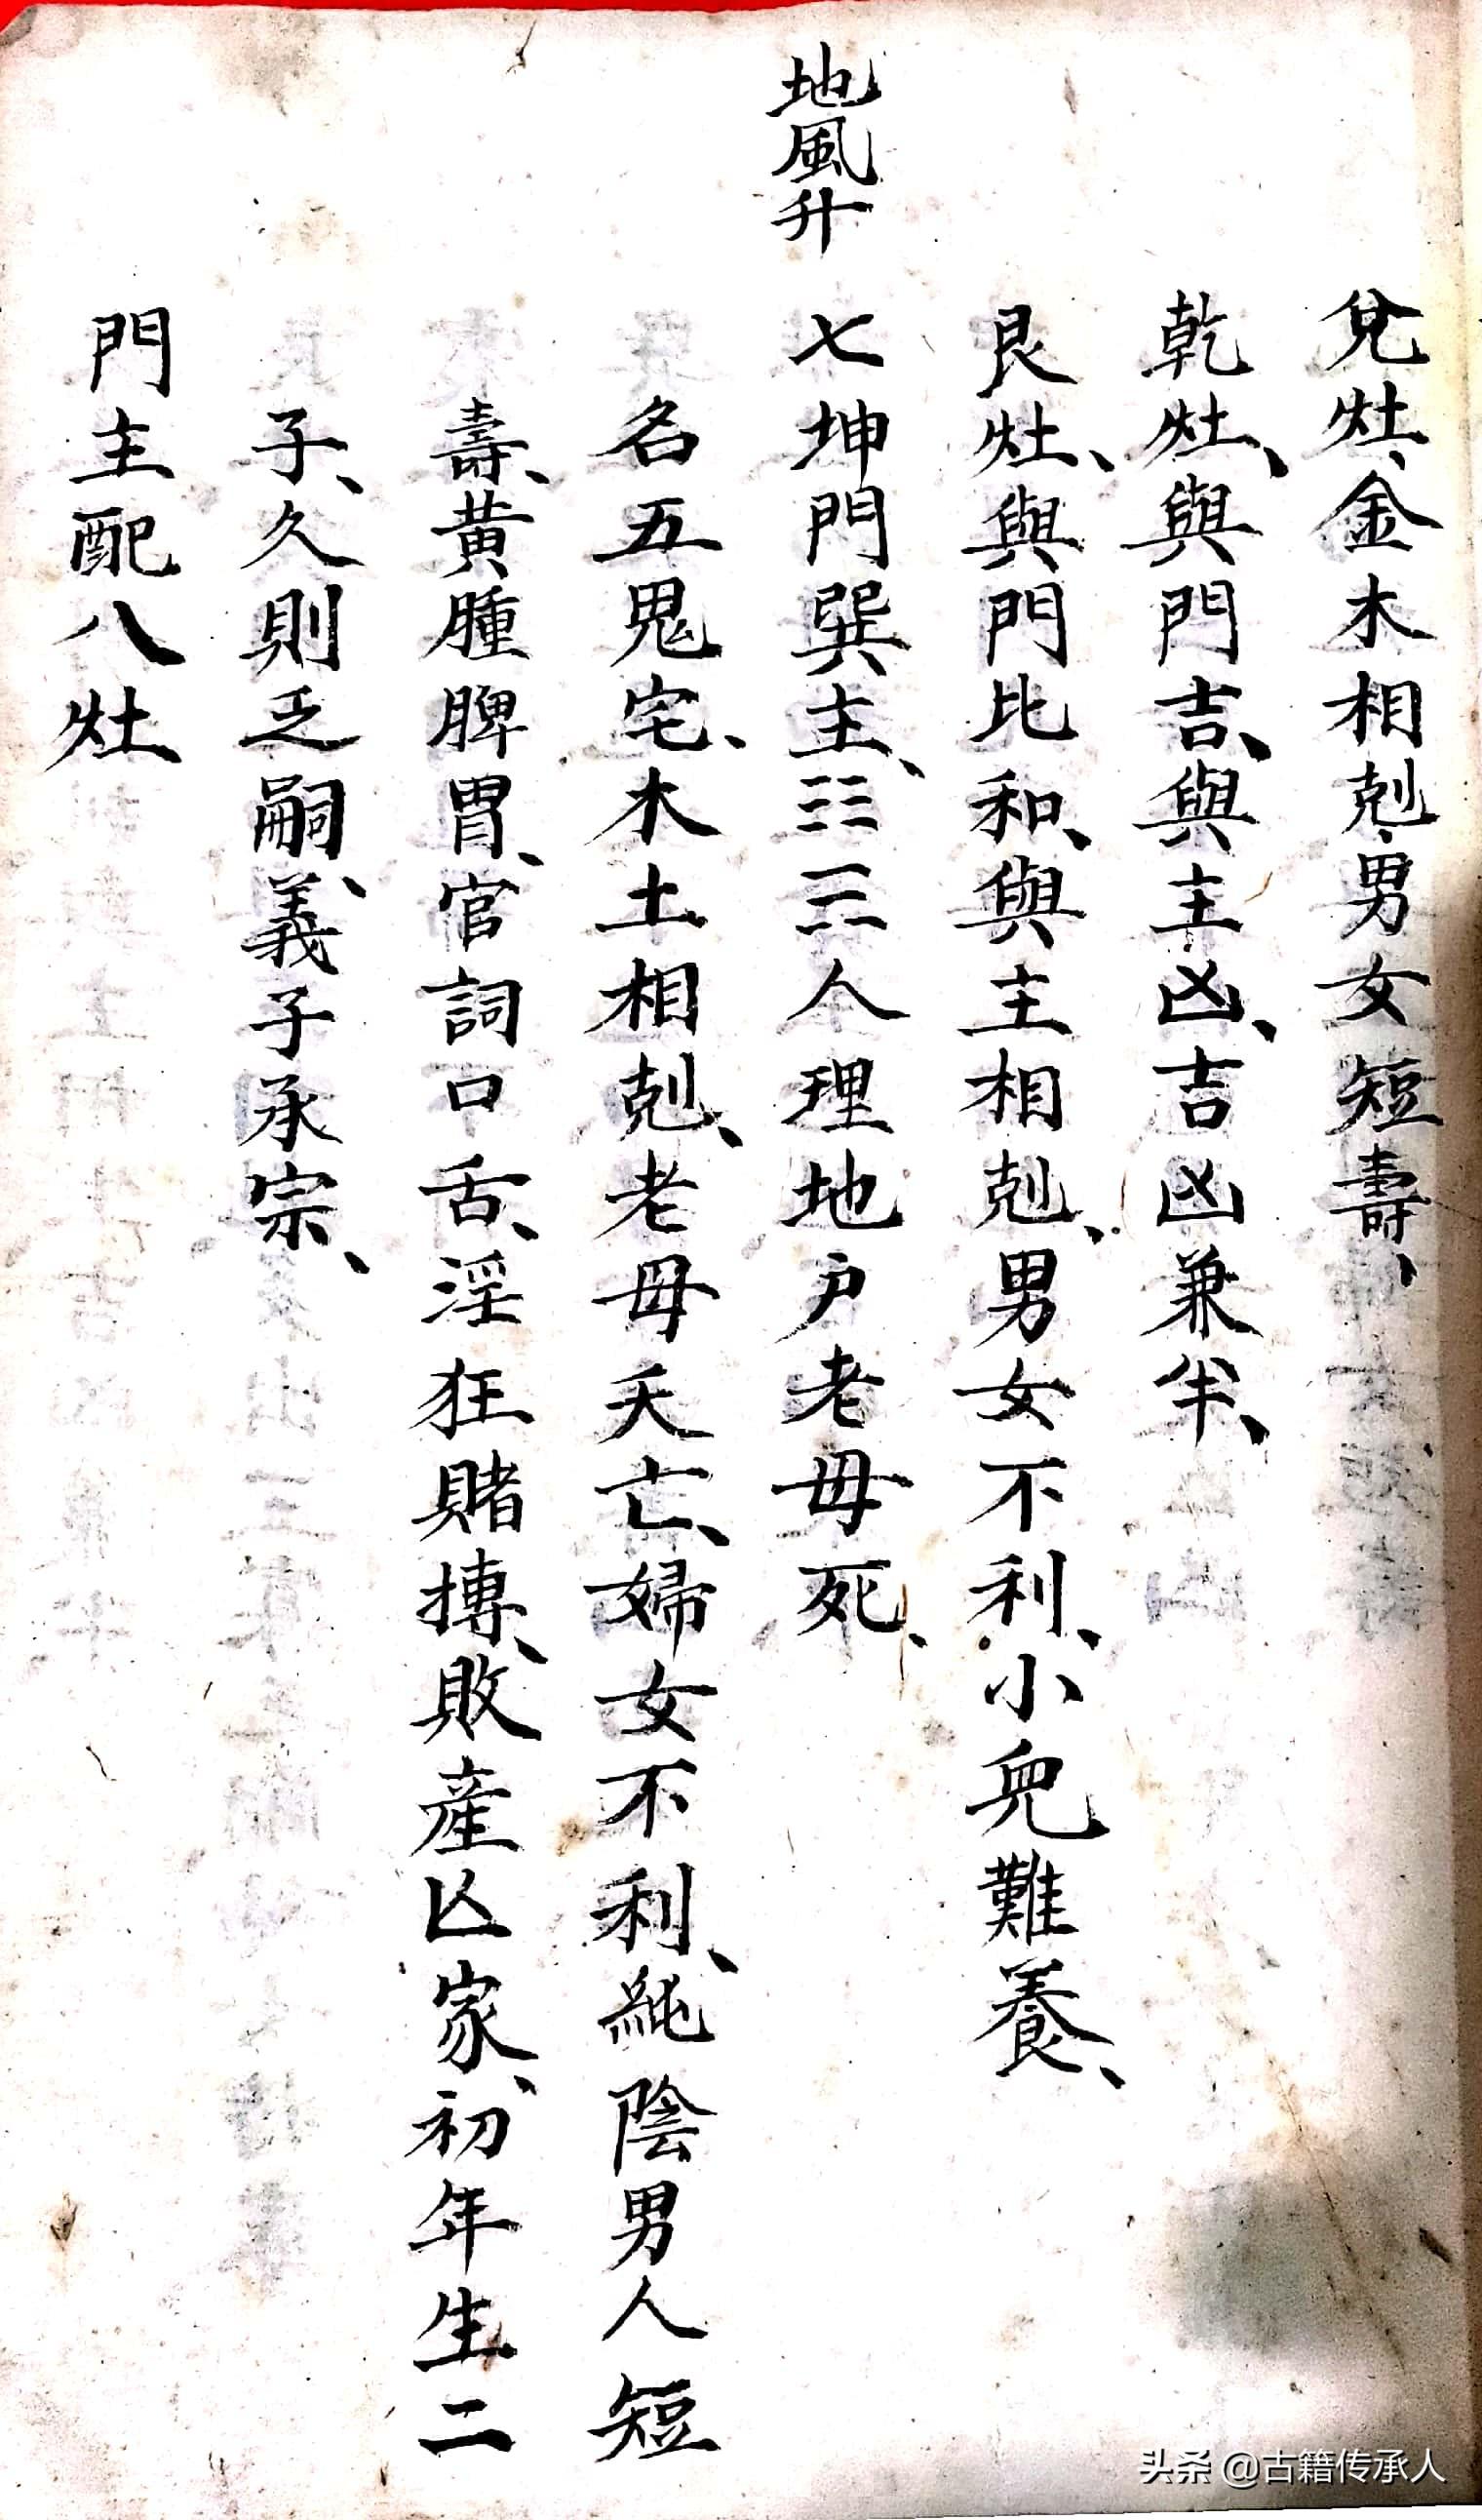 兌灶、金木相剋、男女短壽、
乾灶、與門吉、與主凶、吉凶兼半、
艮灶、與門比和、與主相剋、男女不利、小兒難養、
地風升
七坤門巽主、☷☴人理地户老母死、
名五鬼宅、木土相剋、老母夭亡、婦女不利、純陰男人短
壽、黃腫脾胃、官詞口舌、淫狂賭摶、敗產亾家、初年生二
子、久則乏嗣、義子承宗、
門主配八灶、
头条 @古籍传承人